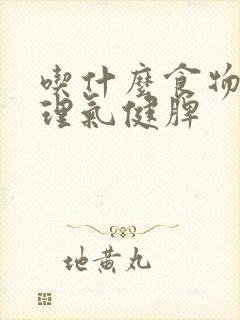 喫什麼食物
理氣健脾
地黃丸